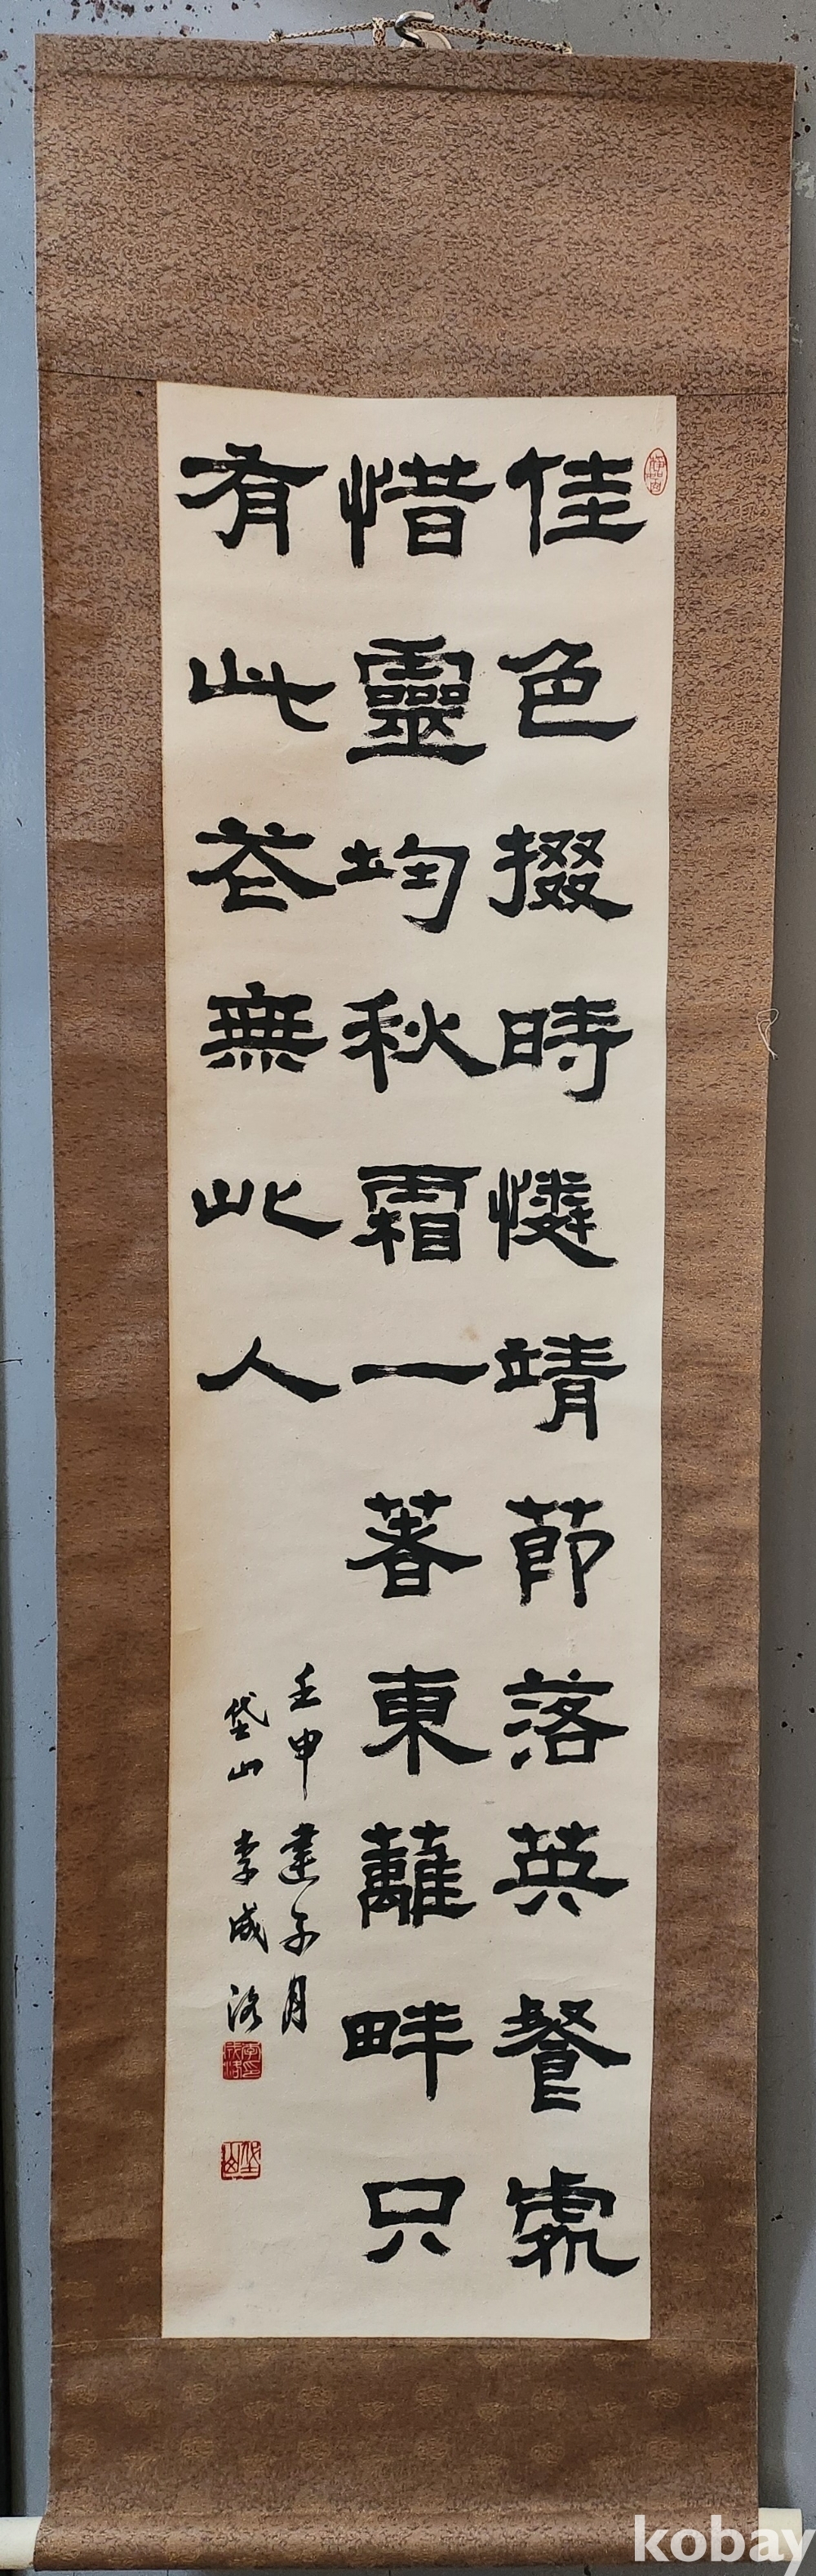 佳色掇時憐靖節落英餐處
惜靈均秋霜一著東蘺畔只
有此花無此人
壬申建子月
垈山 李成洛
kobay